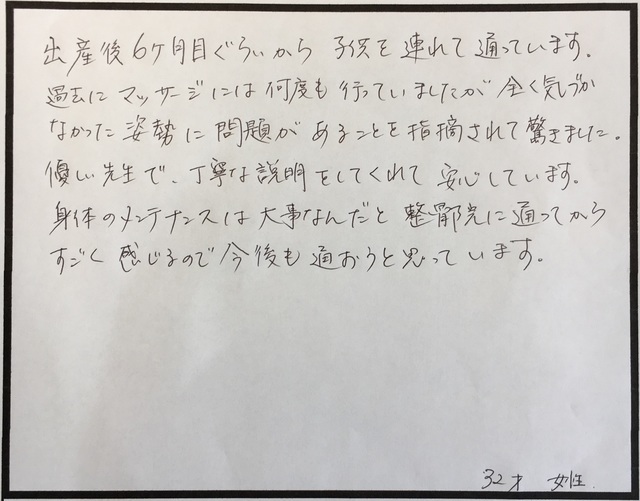 出産後6ヶ月目ぐらいから 子供を連れて通っています。
過去にマッサージには何度も行っていましたが 全く気づか
なかった姿勢に問題があることを指摘されて驚きました。
優しい先生で、丁寧な説明をしてくれて安心しています。
身体のメンテナンスは大事なんだと整骨院に通ってから
すごく感じるので今後も通おうと思っています。
32才 女性